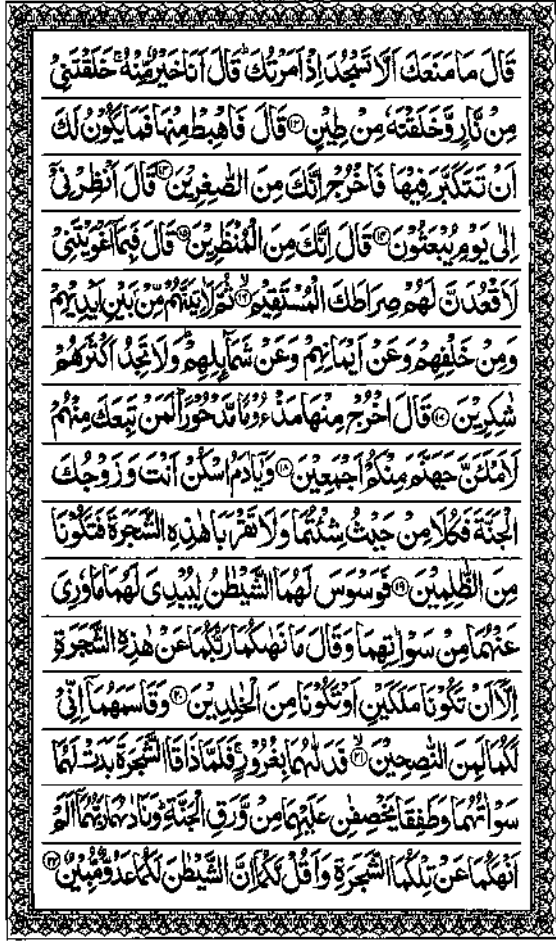 قَالَ مَا مَنَعَكَ اَلَّا تَسْجُدَ اِذْ اَمَرْتُكَ ؕ قَالَ اَنَا خَيْرٌ مِّنْهُ ۚ خَلَقْتَنِيْ
مِنْ نَّارٍ وَّخَلَقْتَهٗ مِنْ طِيْنٍ ﴿۱۲﴾ قَالَ فَاهْبِطْ مِنْهَا فَمَا يَكُوْنُ لَكَ
اَنْ تَتَكَبَّرَ فِيْهَا فَاخْرُجْ اِنَّكَ مِنَ الصّٰغِرِيْنَ ﴿۱۳﴾ قَالَ اَنْظِرْنِيْۤ
اِلٰى يَوْمِ يُبْعَثُوْنَ ﴿۱۴﴾ قَالَ اِنَّكَ مِنَ الْمُنْظَرِيْنَ ﴿۱۵﴾ قَالَ فَبِمَاۤ اَغْوَيْتَنِيْ
لَاَقْعُدَنَّ لَهُمْ صِرَاطَكَ الْمُسْتَقِيْمَ ﴿۱۶﴾ۙ ثُمَّ لَاٰتِيَنَّهُمْ مِّنْۢ بَيْنِ اَيْدِيْهِمْ
وَمِنْ خَلْفِهِمْ وَعَنْ اَيْمَانِهِمْ وَعَنْ شَمَآئِلِهِمْ ؕ وَلَا تَجِدُ اَكْثَرَهُمْ
شٰكِرِيْنَ ﴿۱۷﴾ قَالَ اخْرُجْ مِنْهَا مَذْءُوْمًا مَّدْحُوْرًا ؕ لَمَنْ تَبِعَكَ مِنْهُمْ
لَاَمْلَئَنَّ جَهَنَّمَ مِنْكُمْ اَجْمَعِيْنَ ﴿۱۸﴾ وَيٰۤاٰدَمُ اسْكُنْ اَنْتَ وَزَوْجُكَ
الْجَنَّةَ فَكُلَا مِنْ حَيْثُ شِئْتُمَا وَلَا تَقْرَبَا هٰذِهِ الشَّجَرَةَ فَتَكُوْنَا
مِنَ الظّٰلِمِيْنَ ﴿۱۹﴾ فَوَسْوَسَ لَهُمَا الشَّيْطٰنُ لِيُبْدِيَ لَهُمَا مَا وٗرِيَ
عَنْهُمَا مِنْ سَوْاٰتِهِمَا وَقَالَ مَا نَهٰىكُمَا رَبُّكُمَا عَنْ هٰذِهِ الشَّجَرَةِ
اِلَّاۤ اَنْ تَكُوْنَا مَلَكَيْنِ اَوْ تَكُوْنَا مِنَ الْخٰلِدِيْنَ ﴿۲۰﴾ وَقَاسَمَهُمَاۤ اِنِّيْ
لَكُمَا لَمِنَ النّٰصِحِيْنَ ﴿۲۱﴾ۙ فَدَلّٰىهُمَا بِغُرُوْرٍ ۚ فَلَمَّا ذَاقَا الشَّجَرَةَ بَدَتْ لَهُمَا
سَوْاٰتُهُمَا وَطَفِقَا يَخْصِفٰنِ عَلَيْهِمَا مِنْ وَّرَقِ الْجَنَّةِ ؕ وَنَادٰىهُمَا رَبُّهُمَاۤ اَلَمْ
اَنْهَكُمَا عَنْ تِلْكُمَا الشَّجَرَةِ وَاَقُلْ لَّكُمَاۤ اِنَّ الشَّيْطٰنَ لَكُمَا عَدُوٌّ مُّبِيْنٌ ﴿۲۲﴾